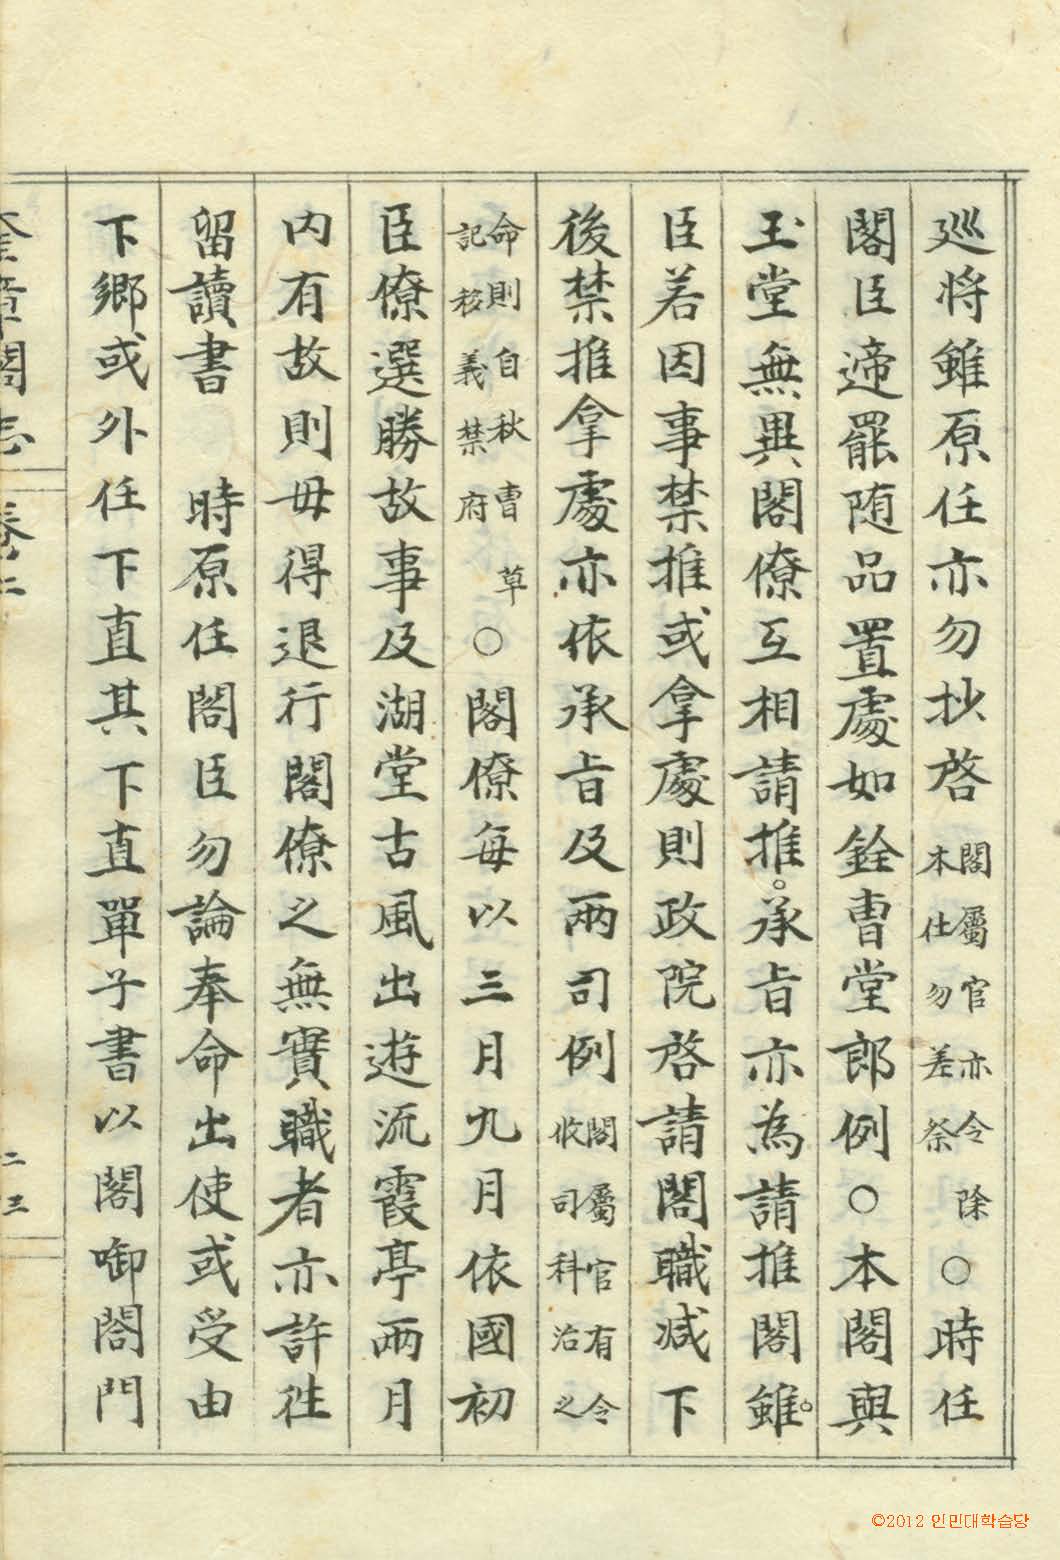 巡将雖原任亦勿抄啓閣屬官亦令除本仕勿差祭○時任
閣臣遞罷随品置處如銓曺堂郎例○本閣與
玉堂無異閣僚互相請推。承旨亦為請推閣雖。
臣若因事禁推或拿處則政院啓請閣職減下
後禁推拿處亦依承旨及兩司例閣屬官有令攸司科治之
命則自秋曺草記移義禁府○閣僚每以三月九月依國初
臣僚選勝故事及湖堂古風出遊流霞亭兩月
内有故則毋得退行閣僚之無實職者亦許徃
留讀書 時原任閣臣勿論奉命出使或受由
下鄉或外任下直其下直單子書以閣啣閤門
奎章閣志 卷之二 二三
©2012 인민대학습당